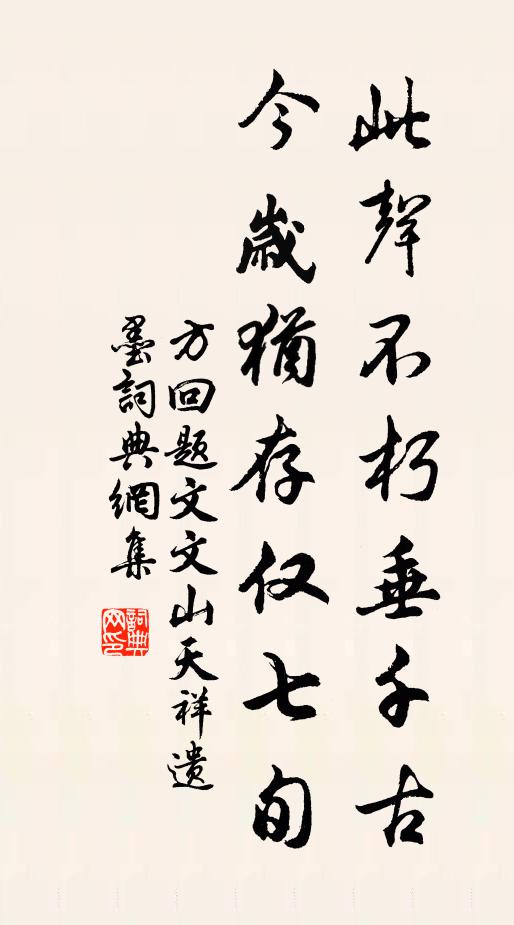 此聲不朽垂千古
今歲猶存仅七旬
方回题文文山天祥遗
墨詞典網集
詞典網印